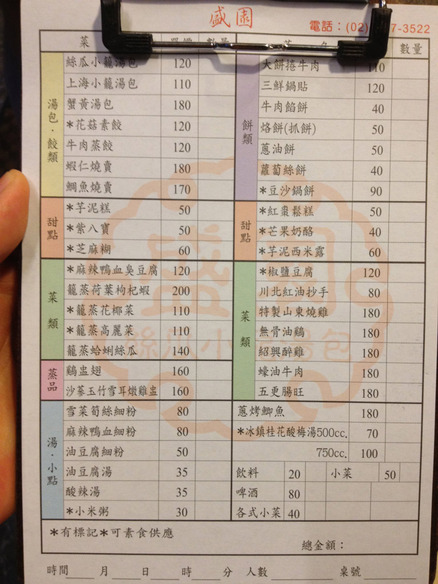 盛園
電話：(02)
7-3522
數量
湯包·餃類
絲瓜小籠湯包 120
上海小籠湯包 110
蟹黃湯包 180
*花菇素餃 120
牛肉蒸餃 120
蝦仁燒賣 180
鯛魚燒賣 170
甜點
*芋泥糕 50
*紫八寶 50
*芝麻糊 60
菜類
*麻辣鴨血臭豆腐 120
籠蒸荷葉枸杞蝦 200
*籠蒸花椰菜 110
*籠蒸高麗菜 110
籠蒸蛤蜊絲瓜 140
蒸品
鷄盅翅 160
沙蔘玉竹雪耳燉雞盅 160
湯·小點
雪菜筍絲細粉 80
麻辣鴨血細粉 80
油豆腐細粉 50
油豆腐湯 35
酸辣湯 35
*小米粥 30
*有標記*可素食供應
餅類
大餅捲牛肉 110
三鮮鍋貼 120
牛肉餡餅 40
烙餅(抓餅) 50
蔥油餅 50
蘿蔔絲餅 40
*豆沙鍋餅 90
甜點
*紅棗鬆糕 50
*芒果奶酪 40
*芋泥西米露 60
菜類
*椒鹽豆腐 120
川北紅油抄手 80
特製山東燒雞 180
無骨油鷄 180
紹興醉雞 180
蠔油牛肉 180
五更腸旺 180
蔥烤鯽魚 180
*冰鎮桂花酸梅湯500cc. 70
750cc. 100
飲料 20 小菜 50
啤酒 80
各式小菜 40
總金額：
時間 月 日 時 分 人數 桌號